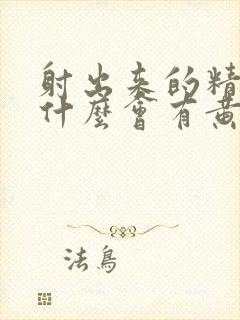 射出来的精
什麼會有黃
法鳥